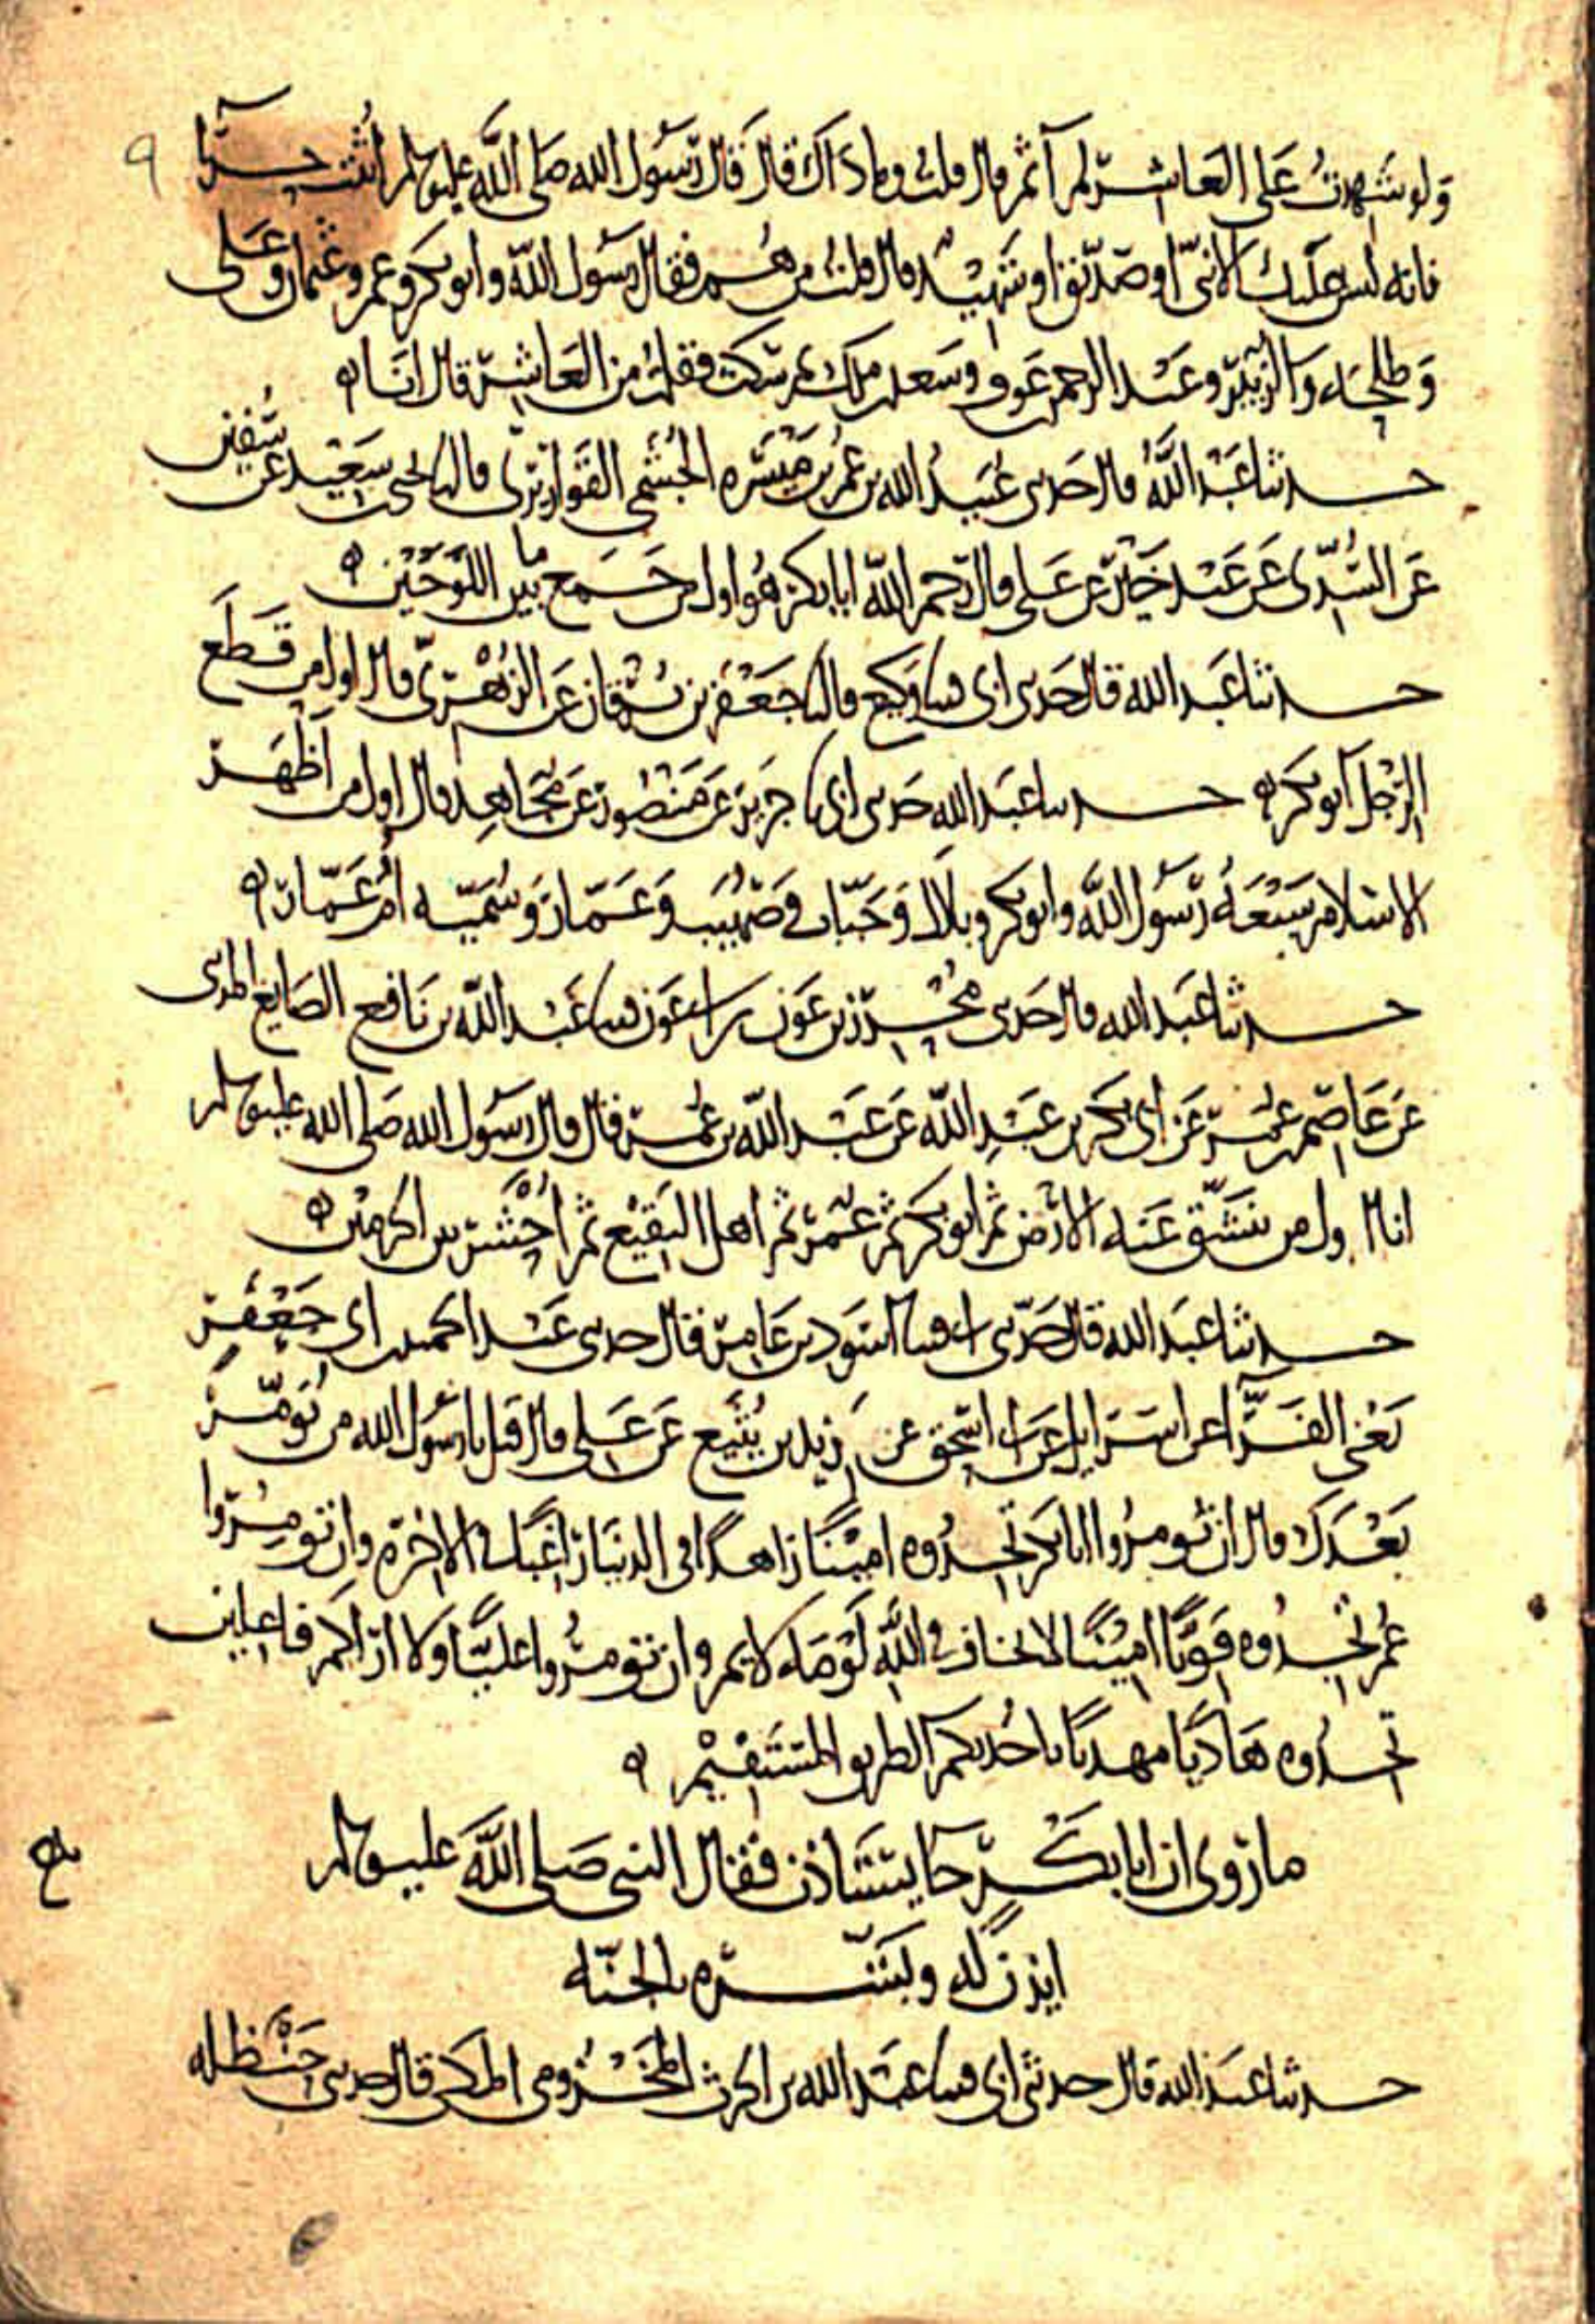 ولو شهدت على العاشر لم آثم قال قلت وما ذاك قال قال رسول الله صلى الله عليه وسلم اثبت حرا ٩
فانه ليس عليك الا نبي او صديق او شهيد قال قلت من هم فقال رسول الله وابو بكر وعمر وعثمان وعلى
وطلحه والزبير وعبد الرحمن عوف وسعد بن ملك ثم سكت فقلت من العاشر قال انا ه
حدثنا عبد الله قال حدثني عبيد الله بن عمر بن ميسره الجشمى القواريرى قال نا يحيى سعيد عن سفين
عن السدى عن عبد خير عن على قال رحم الله ابا بكر هو اول من جمع ما بين اللوحين ه
حدثنا عبد الله قال حدثني ابى قثنا وكيع قال نا جعفر بن برقان عن الزهرى قال اول من قطع
الرجل ابو بكر ه حدثنا عبد الله حدثنى ابى نا جرير عن منصور عن مجاهد قال اول من اظهر
الاسلام سبعه رسول الله وابو بكر وبلال وخباب وصهيب وعمار وسميه ام عمار ه
حدثنا عبد الله قال حدثني محرز بن عون بن ابى عون قثنا عبد الله بن نافع الصايغ المدنى
عن عاصم عمر عن ابى بكر بن عبد الله عن عبد الله بن عمر قال قال رسول الله صلى الله عليه وسلم
انا اول من تنشق عنه الارض ثم ابو بكر ثم عمر ثم اهل البقيع ثم احشر بين الحرمين ه
حدثنا عبد الله قال حدثني ابى قثنا اسود بن عامر قال حدثنى عبد الحميد ابى جعفر
يعنى الفرا عن اسرايل عن ابى اسحق عن زيد بن يثيع عن على قال قيل يا رسول الله من نومر
بعدك قال ان تومروا ابا بكر تجدوه امينا زاهدا فى الدنيا راغبا فى الاخره وان تومروا
عمر تجدوه قويا امينا لا يخاف فى الله لومه لايم وان تومروا عليا ولا اراكم فاعلين
تجدوه هاديا مهديا ياخذ بكم الطريق المستقيم ه
ما روى ان ابا بكر جا يستاذن فقال النبى صلى الله عليه وسلم
ايذن له وبشره بالجنه
حدثنا عبد الله قال حدثنى ابى قثنا عبد الله بن الحرث المخزومى المكى قال حدثنى حنظله